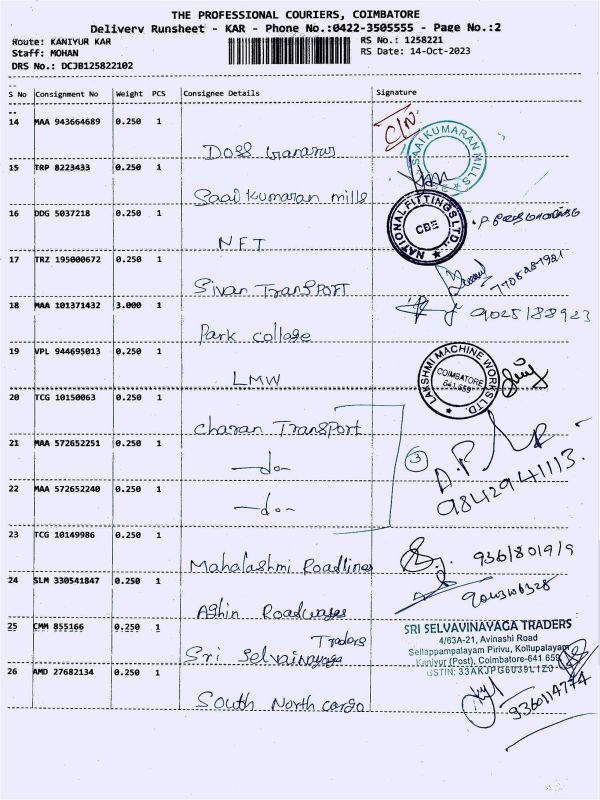 THE PROFESSIONAL COURIERS, COIMBATORE
Delivery Runsheet - KAR - Phone No.:0422-3505555 - Page No.:2
Route: KANIYUR KAR RS No.: 1258221
Staff: MOHAN RS Date: 14-Oct-2023
DRS No.: DCJB125822102
S No Consignment No Weight PCS Consignee Details Signature
14 MAA 943664689 0.250 1 C/N
Doss
SAAI KUMARAN MILLS
15 TRP 8223433 0.250 1
Saai kumaran mills
16 DDG 5037218 0.250 1
NATIONAL FITTINGS LTD. CBE
NFT
17 TRZ 195000672 0.250 1
Sivan TransPORT
18 MAA 101371432 3.000 1 9025188923
Park collage
19 VPL 944695013 0.250 1
LAKSHMI MACHINE WORKS LTD. COIMBATORE 641 659
LMW
20 TCG 10150063 0.250 1
Charan TransPORT
21 MAA 572652251 0.250 1 3
-do-
22 MAA 572652240 0.250 1 9842941113.
-do-
23 TCG 10149986 0.250 1
Mahalashmi Roadlines 9361801919
24 SLM 330541847 0.250 1
Ashin Roadways
25 CMM 855166 0.250 1
SRI SELVAVINAYAGA TRADERS
4/63A-21, Avinashi Road
Sellappampalayam Pirivu, Kollupalayam
Kaniyur (Post), Coimbatore-641 659
Traders
Sri Selvainayaga
26 AMD 27682134 0.250 1
South North cargo 9360114774